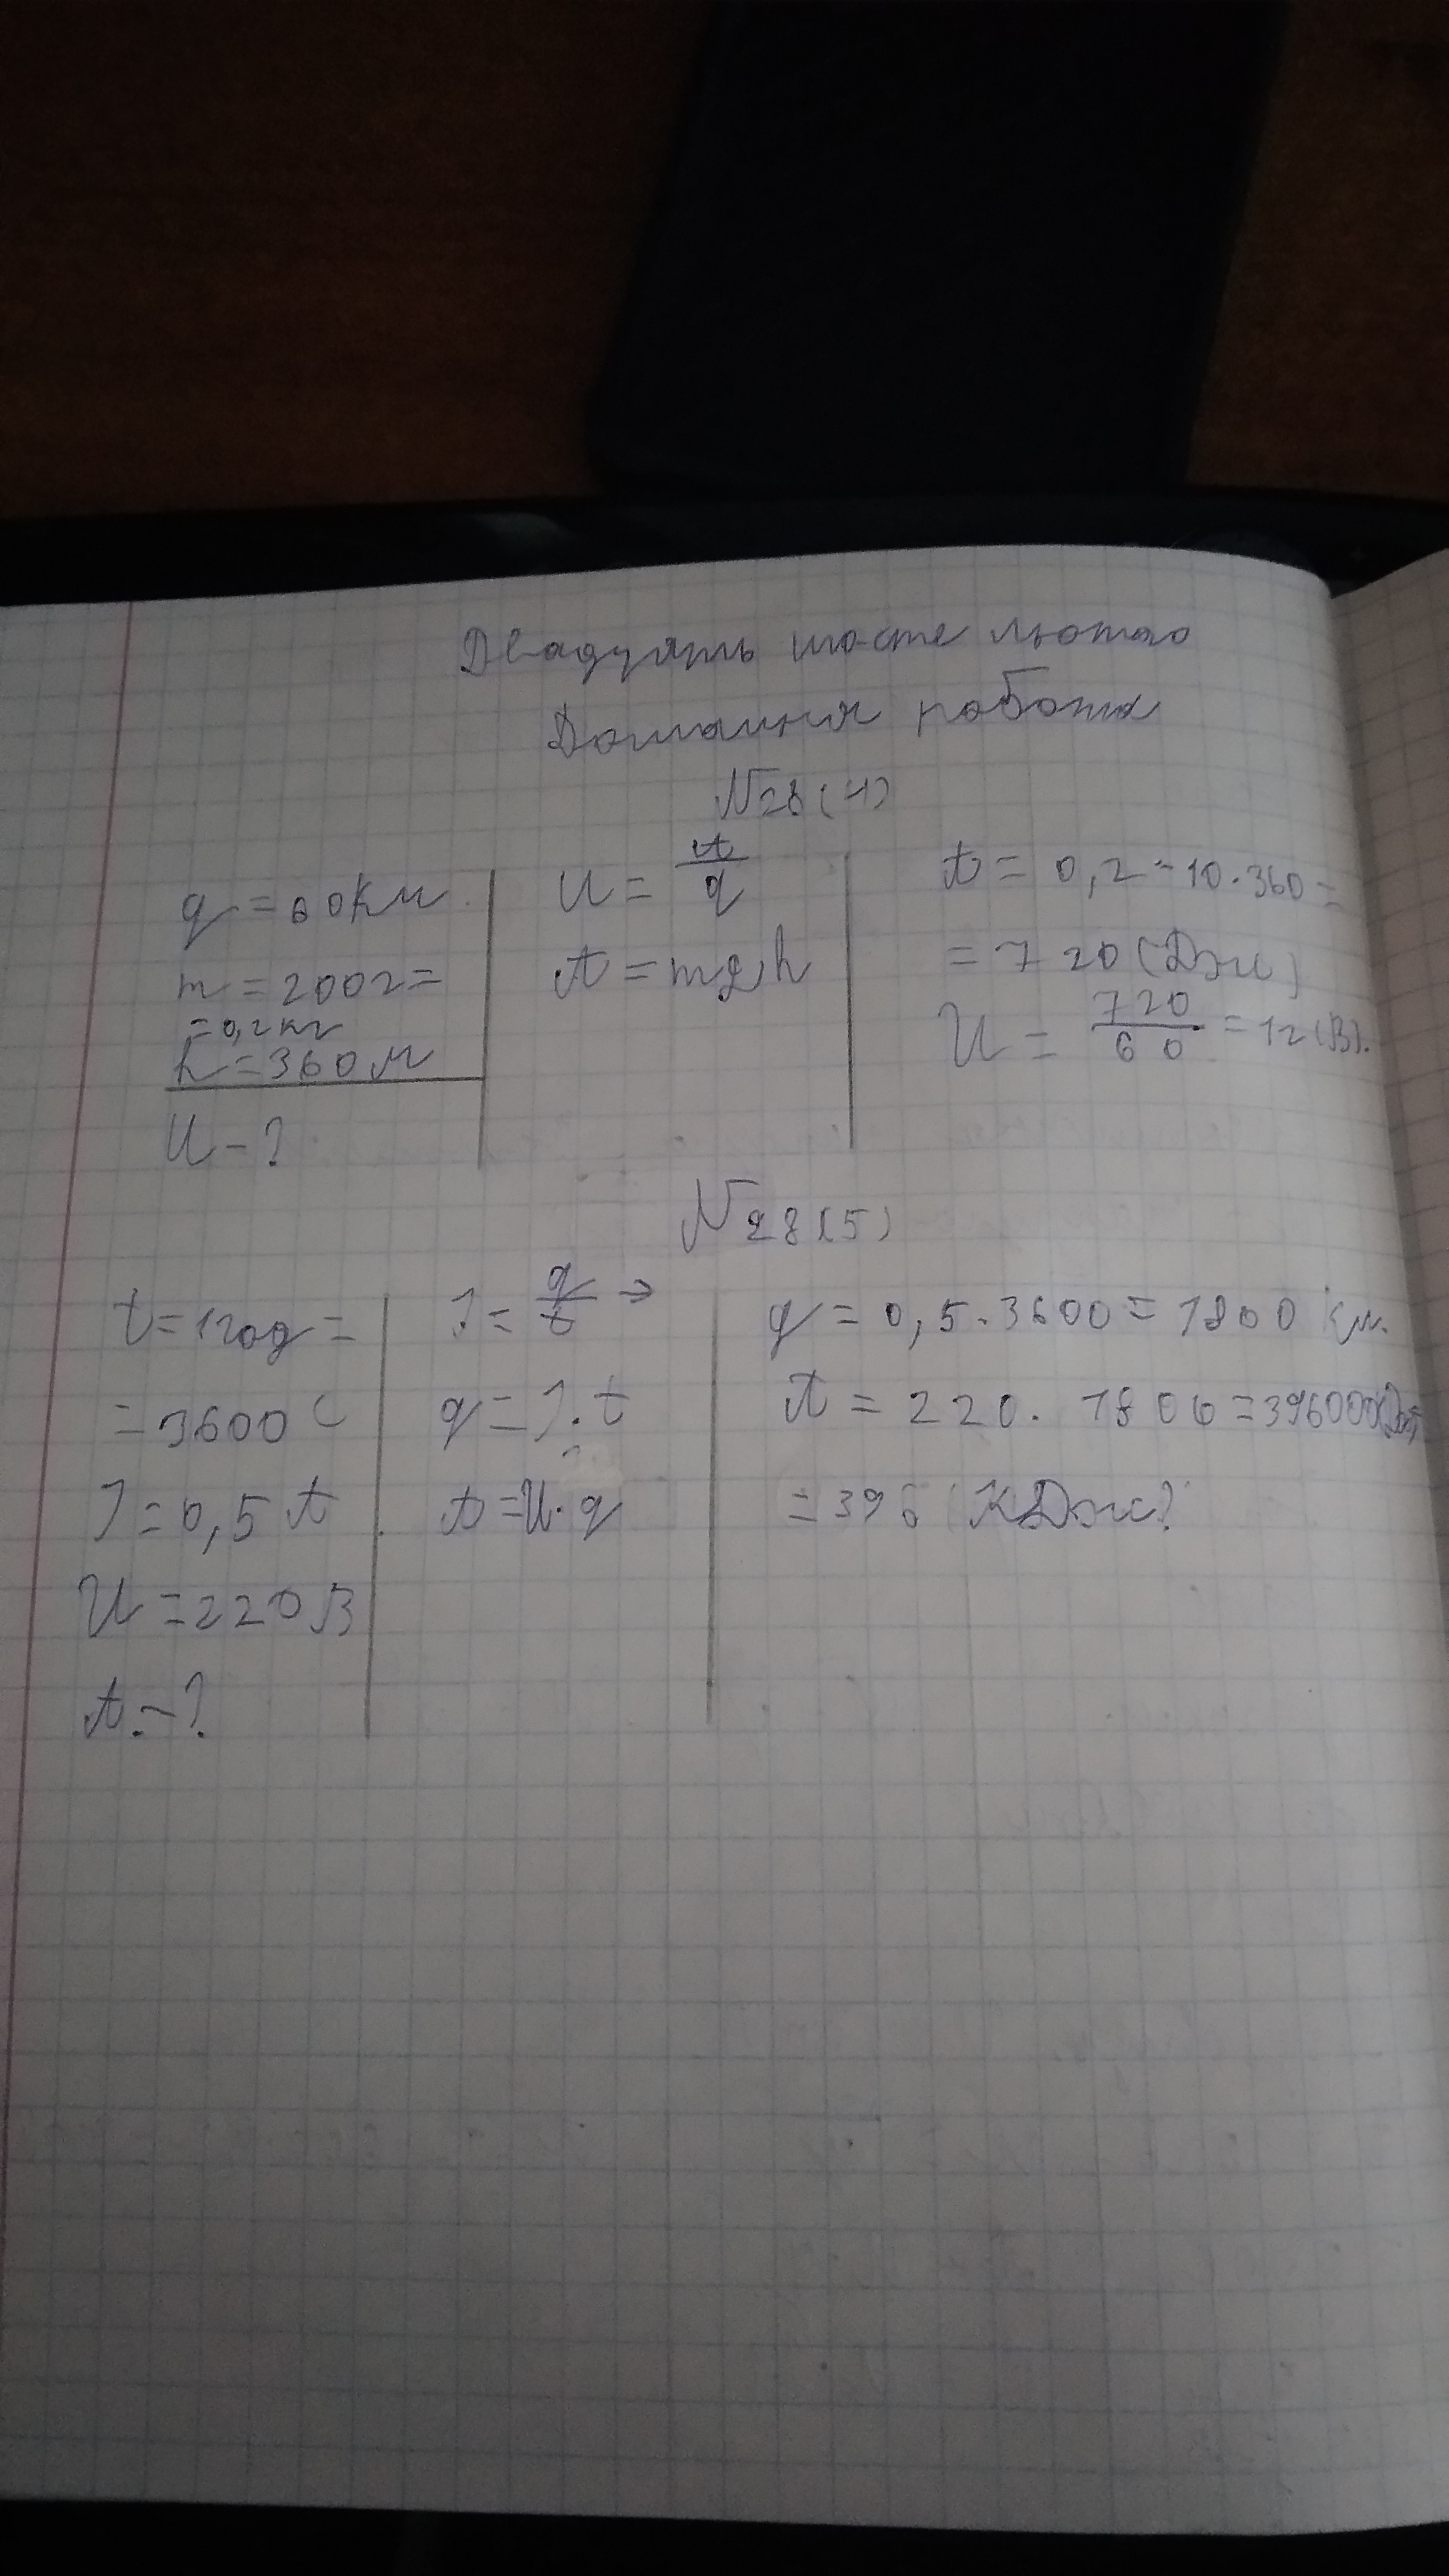 Двадцять шосте лютого
Домашня робота
№28(4)
q = 60 Кл
m = 200г =
= 0,2кг
h = 360 м
U - ?
U = A/q
A = mgh
A = 0,2 · 10 · 360 =
= 720 (Дж)
U = 720/60 = 12 (В).
№28(5)
t = 1год =
= 3600 с
I = 0,5 А
U = 220 В
A - ?
I = q/t →
q = I · t
A = U · q
q = 0,5 · 3600 = 1800 Кл.
A = 220 · 1800 = 396000(Дж)
= 396 КДж?